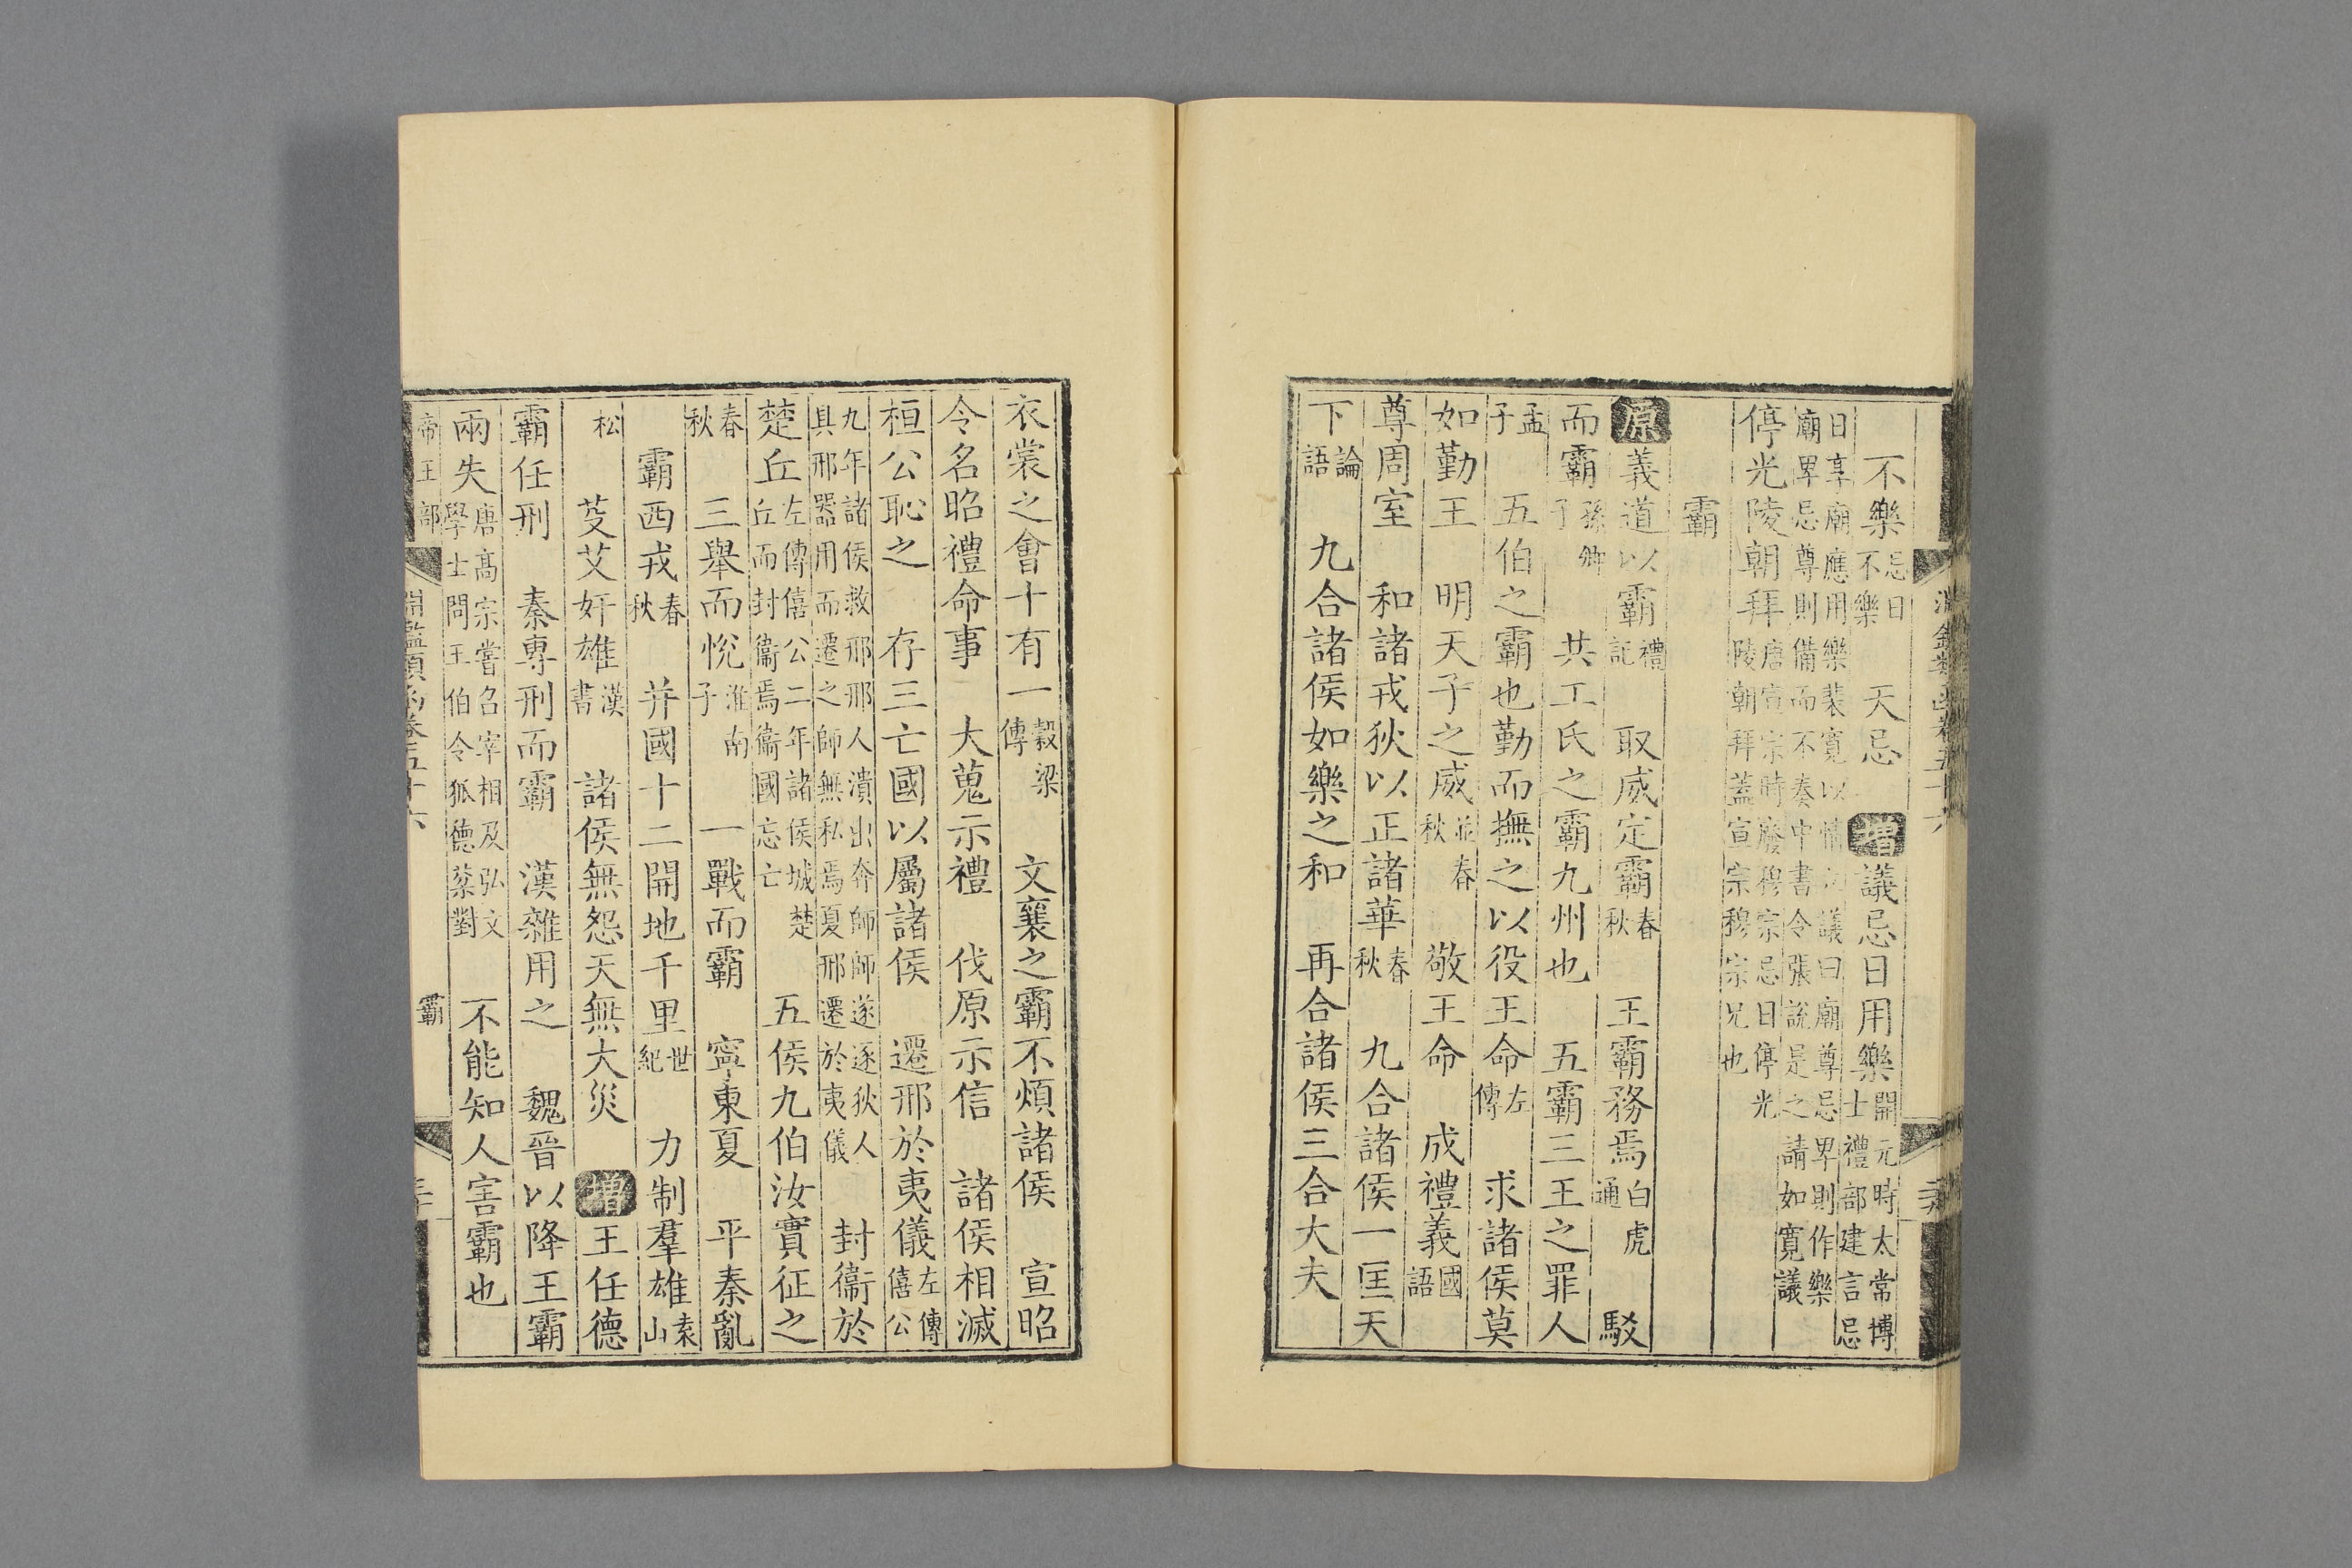 淵鑑類函卷五十六
不樂忌日不樂　天忌　增議忌日用樂開元時太常博士禮部建言忌
日享廟應用樂裴寬以情立議曰廟尊忌卑則作樂廟卑忌尊則備而不奏中書令張說是之請如寬議
停光陵朝拜唐宣宗時廢穆宗忌日停光陵朝拜蓋宣宗穆宗兄也
霸
原義道以霸禮記　取威定霸春秋　王霸務焉白虎通　駁
而霸孫卿子　共工氏之霸九州也　五霸三王之罪人
孟子　五伯之霸也勤而撫之以役王命左傳　求諸侯莫
如勤王　明天子之威並春秋　敬王命　成禮義國語
尊周室　和諸戎狄以正諸華春秋　九合諸侯一匡天
下論語　九合諸侯如樂之和　再合諸侯三合大夫
衣裳之會十有一穀梁傳　文襄之霸不煩諸侯　宣昭
令名昭禮命事　大蒐示禮　伐原示信　諸侯相滅
桓公恥之　存三亡國以屬諸侯　遷邢於夷儀左傳僖公
九年諸侯救邢邢人潰出奔師師遂逐狄人具邢器用而遷之師無私焉夏邢遷於夷儀　封衞於
楚丘左傳僖公二年諸侯城楚丘而封衞焉衞國忘亡　五侯九伯汝實征之
春秋　三舉而悅淮南子　一戰而霸　寧東夏　平秦亂
霸西戎春秋　并國十二開地千里世紀　力制羣雄袁山
松　芟艾奸雄漢書　諸侯無怨天無大災　增王任德
霸任刑　秦專刑而霸　漢雜用之　魏晉以降王霸
兩失唐高宗嘗召宰相及弘文學士問王伯令狐德棻對　不能知人害霸也
帝王部　淵鑑類函卷五十六　霸